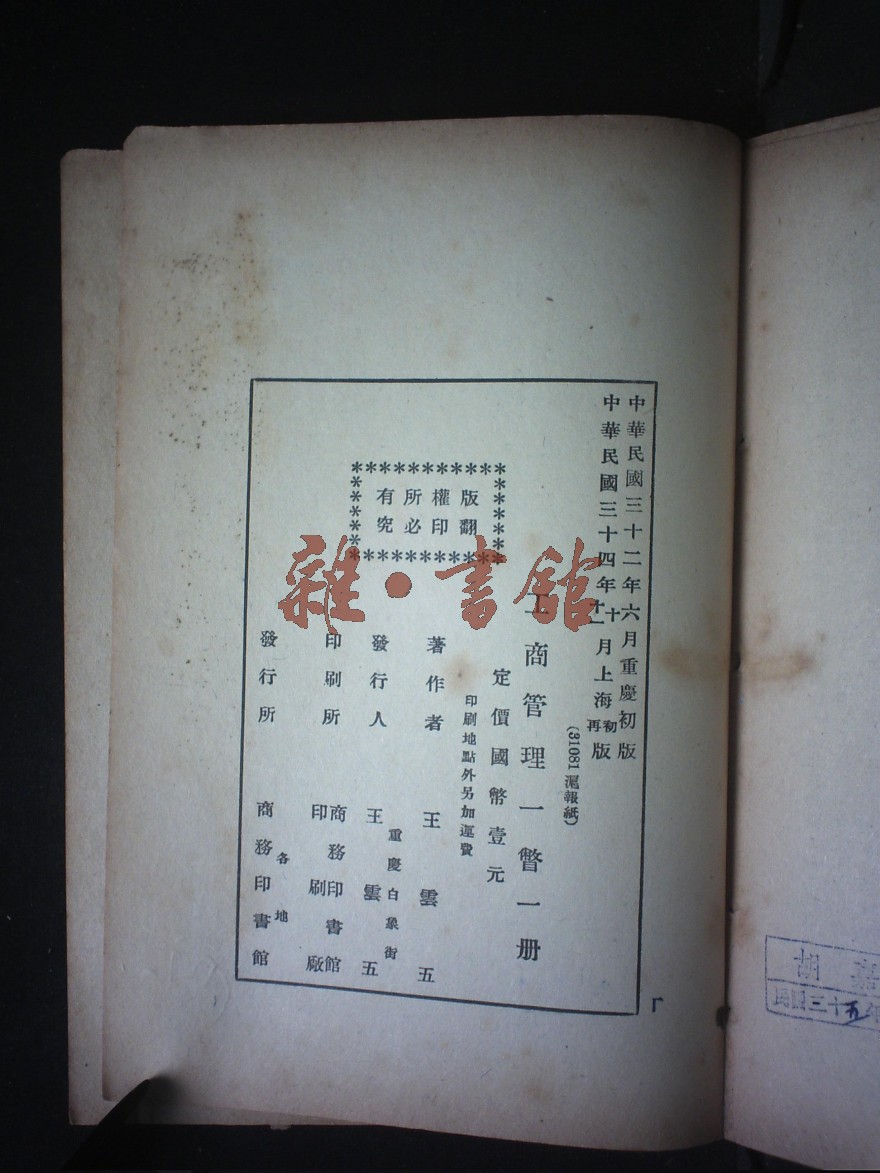 中華民國三十二年六月重慶初版
中華民國三十四年十十一月上海初再版
(31081 滬報紙)
工商管理一瞥一册
定價國幣壹元
印刷地點外另加運費
版權所有
翻印必究
著作者 王雲五
發行人 重慶白象街 王雲五
印刷所 商務印書館 印刷廠
發行所 各地 商務印書館
雜·書館
胡
民國三十五年